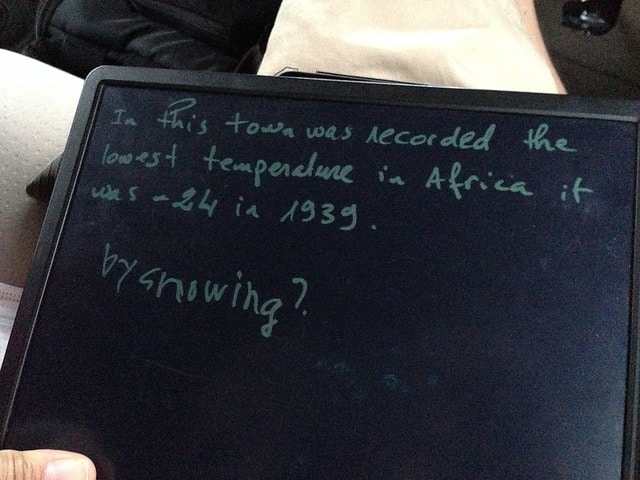 In this town was recorded the
lowest temperature in Africa it
was -24 in 1939.
by snowing?